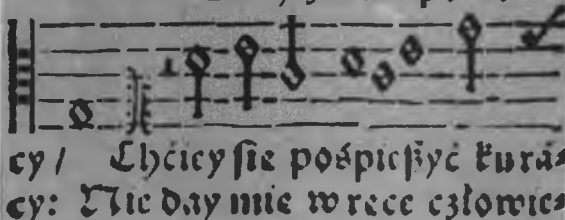 cy / Chćiey ſie poſpieſzyć ku rá⸗
cy: Nie day mie w ręce człowie⸗